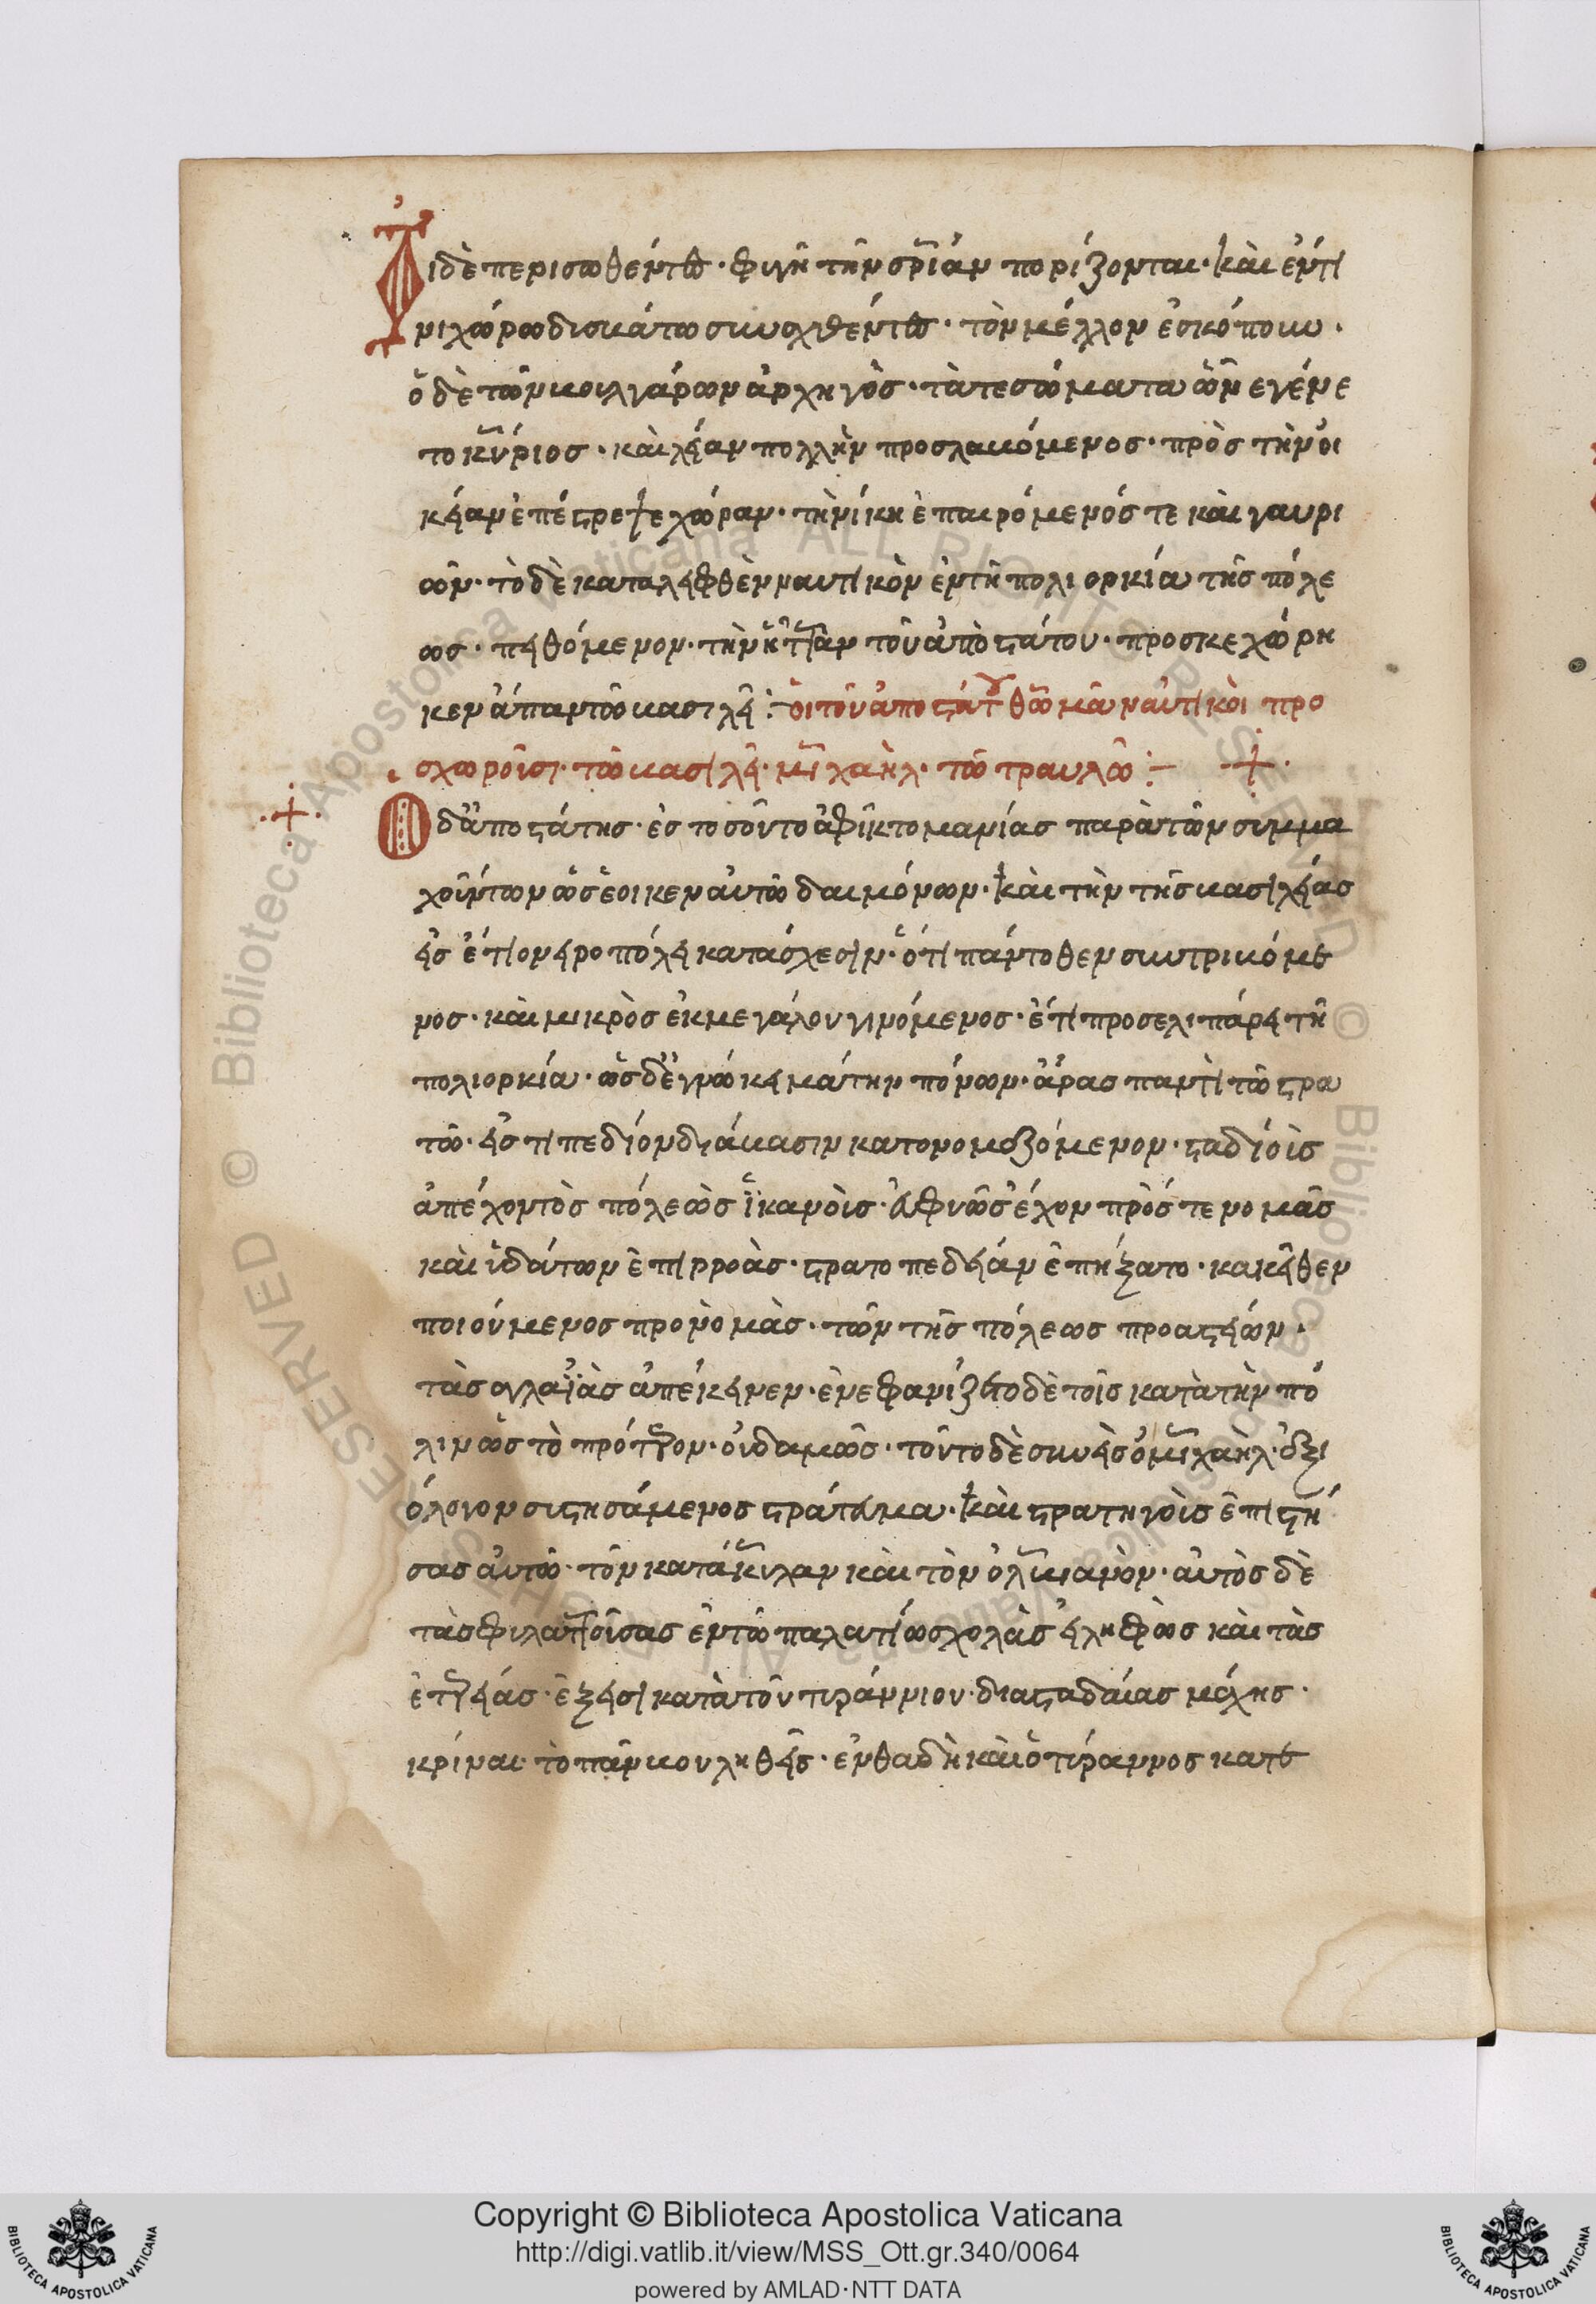 Οιδὲ περισωθέντες· φυγῆ τὴν σρίαν πορίζονται· καὶ ἐντι
νι χώρω δυσβάτω συσχεθέντες· τὸν μέλλον ἐσκόπουν·
ὁ δὲ τῶν βουλγάρων ἀρχηγὸσ· τά τε σώματα ὧν εγένε
το κύριος· καὶ λείαν πολλὴν προσλαβόμενος· πρὸς τὴν οι
κείαν ἐπέστρεψε χώραν· τῆ νίκη ἐπαιρόμενός τε καὶ γαυρι
ῶν· τὸ δὲ καταλειφθὲν ναυτικὸν ἐν τῆ πολιορκία τῆς πόλε
ως· πειθόμενον· τὴν ἧτταν τοῦ ἀποστάτου· προσκεχώρη
κεν ἅπαν τῶ βασιλεῖ: οἱ τοῦ ἀποστάτου θωμᾶ ναυτικοὶ προ
σχωροῦσι· τῶ βασιλεῖ· μιχαὴλ· τῶ τραυλῶ:
Ο δ' ἀποστάτης· ἐς τοσοῦτο ἀφῖκτο μανίας παρὰ τῶν συμμα
χούντων ὡς ἔοικεν αὐτῶ δαιμόνων· καὶ τὴν τῆς βασιλείας
εἰς ἔτι ονειροπόλει κατάσχεσιν· ὅτι πάντοθεν συντριβόμε
νος· καὶ μικρὸς ἐκ μεγάλου γινόμενος· ἔτι προσελιπάρει τῆ
πολιορκία· ὡς δ' ἐγνώκει μάτην πόνων· ἄρας παντὶ τῶ στρα
τῶ· εἰς τι πεδίον διάβασιν κατονομαζόμενον· σταδίοις
ἀπέχοντὸς πόλεὼς ἱκανοῖς· ἀφνῶς ἔχον πρὸς τε νομὰς
καὶ ὑδάτων ἐπιρροὰς· στρατοπεδείαν ἐπήξατο· κακεῖθεν
ποιούμενος προνομὰς· τῶν τῆς πόλεως προαστείων·
τὰς αγλαΐὰς ἀπέκειρεν· ἐνεφανίζετο δὲ τοῖς κατὰ τὴν πό
λιν ὡς τὸ πρότερον· οὐδαμῶς· τοῦτο δὲ συνεὶς ὁ μιχαὴλ· ἀξι
όλογον συστησάμενος στράτευμα· καὶ στρατηγοὺς ἐπιστή
σας αὐτῶ· τὸν κατάκυλαν καὶ τὸν ὀλβιανὸν· αὐτὸς δὲ
τὰς φυλαττούσας ἐν τῶ παλατίω σχολὰς εἰληφὼς καὶ τὰς
ἑτερείας· ἔξεισι κατὰ τοῦ τυράννου· διασταδαίας μάχης·
κρίναι τὸ πᾶν βουληθεὶς· ἐνθαδὴ καὶ ὁ τύραννος κατε